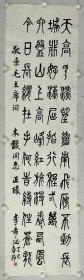 天高雲淡望斷南飛雁不到長
城非好漢屈指行程二萬六盤
山上高峰紅旗漫捲西風今日
長纓在手何時縛住蒼龍
敬录毛主席词
木毅同志正腕 李希